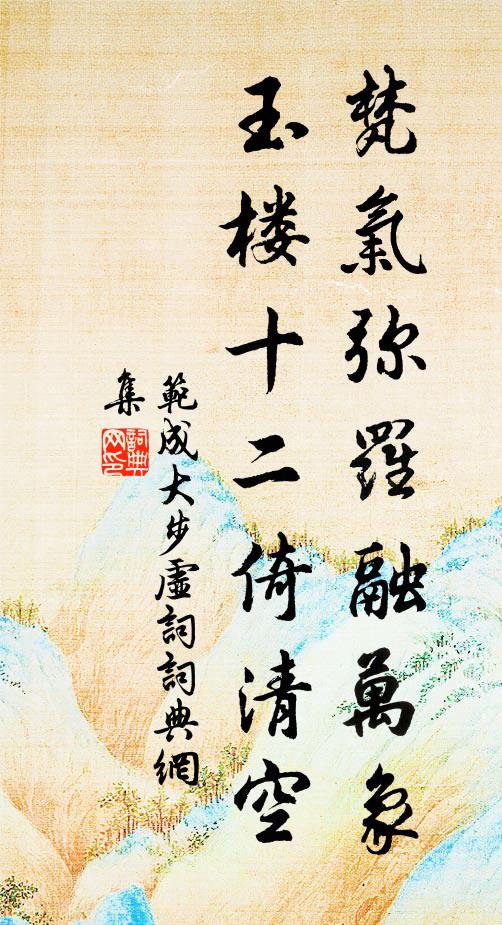 梵氣弥羅融萬象
玉楼十二倚清空
範成大步虛詞詞典網
集
詞典
网印